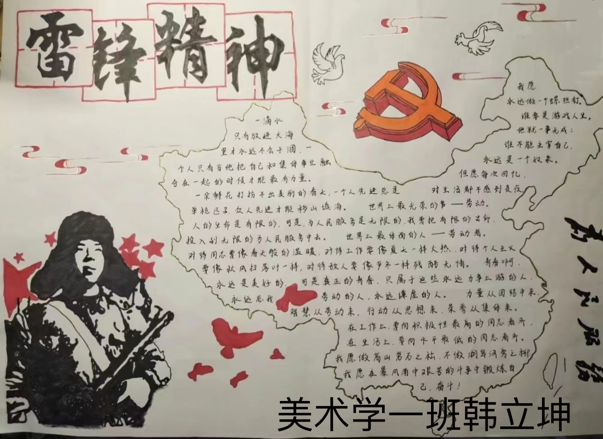 雷锋精神
我愿
永远做一个螺丝钉。
谁要是游戏人生,
他就一事无成;
谁不能主宰自己,
永远是一个奴隶。
一滴水
只有放进大海
里才永远不会干涸,一
个人只有当他把自己和集体事业融
合在一起的时候才能最有力量。
一朵鲜花打扮不出美丽的春天,一个人先进总是
单枪匹马,众人先进才能移山填海。 世界上最光荣的事——劳动。
人的生命是有限的,可是,为人民服务是无限的,我要把有限的生命,
投入到无限的为人民服务中去。 世界上最体面的人——劳动者。
对待同志要像春天般的温暖,对待工作要像夏天一样火热,对待个人主义
要像秋风扫落叶一样,对待敌人要像严冬一样残酷无情。 青春啊,
永远是美好的,可是真正的青春,只属于这些永远力争上游的人,
永远忘我 劳动的人,永远谦虚的人。 力量从团结来
智慧从劳动来,行动从思想来,荣誉从集体来。
在工作上,要向积极性最高的同志看齐,
在生活上,要向水平最低的同志看齐。
我愿做高山岩石之松,不做湖岸河旁之柳
我愿在暴风雨中艰苦的斗争中锻炼自
己,奋斗!
为人民服务
美术学一班韩立坤